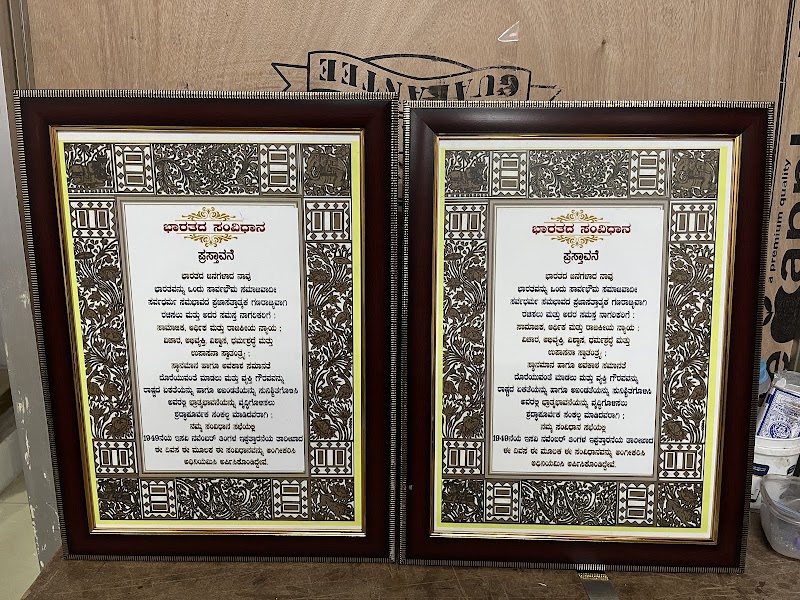 GUARANTEE
ಭಾರತದ ಸಂವಿಧಾನ
ಪ್ರಸ್ತಾವನೆ
ಭಾರತದ ಜನಗಳಾದ ನಾವು
ಭಾರತವನ್ನು ಒಂದು ಸಾರ್ವಭೌಮ ಸಮಾಜವಾದೀ
ಸರ್ವಧರ್ಮ ಸಮಭಾವದ ಪ್ರಜಾಸತ್ತಾತ್ಮಕ ಗಣರಾಜ್ಯವಾಗಿ
ರಚಿಸಲು ಮತ್ತು ಅದರ ಸಮಸ್ತ ನಾಗರಿಕರಿಗೆ :
ಸಾಮಾಜಿಕ, ಆರ್ಥಿಕ ಮತ್ತು ರಾಜಕೀಯ ನ್ಯಾಯ ;
ವಿಚಾರ, ಅಭಿವ್ಯಕ್ತಿ, ವಿಶ್ವಾಸ, ಧರ್ಮಶ್ರದ್ಧೆ ಮತ್ತು
ಉಪಾಸನಾ ಸ್ವಾತಂತ್ರ್ಯ ;
ಸ್ಥಾನಮಾನ ಹಾಗೂ ಅವಕಾಶ ಸಮಾನತೆ
ದೊರೆಯುವಂತೆ ಮಾಡಲು ಮತ್ತು ವ್ಯಕ್ತಿ ಗೌರವವನ್ನು
ರಾಷ್ಟ್ರದ ಏಕತೆಯನ್ನು ಹಾಗೂ ಅಖಂಡತೆಯನ್ನು ಸುನಿಶ್ಚಿತಗೊಳಿಸಿ
ಅವರಲ್ಲಿ ಭ್ರಾತೃಭಾವನೆಯನ್ನು ವೃದ್ಧಿಗೊಳಿಸಲು
ಶ್ರದ್ಧಾಪೂರ್ವಕ ಸಂಕಲ್ಪ ಮಾಡಿದವರಾಗಿ ;
ನಮ್ಮ ಸಂವಿಧಾನ ಸಭೆಯಲ್ಲಿ
1949ನೆಯ ಇಸವಿ ನವೆಂಬರ್ ತಿಂಗಳ ಇಪ್ಪತ್ತಾರನೆಯ ತಾರೀಖಾದ
ಈ ದಿವಸ ಈ ಮೂಲಕ ಈ ಸಂವಿಧಾನವನ್ನು ಅಂಗೀಕರಿಸಿ
ಅಧಿನಿಯಮಿಸಿ ಅರ್ಪಿಸಿಕೊಂಡಿದ್ದೇವೆ.
ಭಾರತದ ಸಂವಿಧಾನ
ಪ್ರಸ್ತಾವನೆ
ಭಾರತದ ಜನಗಳಾದ ನಾವು
ಭಾರತವನ್ನು ಒಂದು ಸಾರ್ವಭೌಮ ಸಮಾಜವಾದೀ
ಸರ್ವಧರ್ಮ ಸಮಭಾವದ ಪ್ರಜಾಸತ್ತಾತ್ಮಕ ಗಣರಾಜ್ಯವಾಗಿ
ರಚಿಸಲು ಮತ್ತು ಅದರ ಸಮಸ್ತ ನಾಗರಿಕರಿಗೆ :
ಸಾಮಾಜಿಕ, ಆರ್ಥಿಕ ಮತ್ತು ರಾಜಕೀಯ ನ್ಯಾಯ ;
ವಿಚಾರ, ಅಭಿವ್ಯಕ್ತಿ, ವಿಶ್ವಾಸ, ಧರ್ಮಶ್ರದ್ಧೆ ಮತ್ತು
ಉಪಾಸನಾ ಸ್ವಾತಂತ್ರ್ಯ ;
ಸ್ಥಾನಮಾನ ಹಾಗೂ ಅವಕಾಶ ಸಮಾನತೆ
ದೊರೆಯುವಂತೆ ಮಾಡಲು ಮತ್ತು ವ್ಯಕ್ತಿ ಗೌರವವನ್ನು
ರಾಷ್ಟ್ರದ ಏಕತೆಯನ್ನು ಹಾಗೂ ಅಖಂಡತೆಯನ್ನು ಸುನಿಶ್ಚಿತಗೊಳಿಸಿ
ಅವರಲ್ಲಿ ಭ್ರಾತೃಭಾವನೆಯನ್ನು ವೃದ್ಧಿಗೊಳಿಸಲು
ಶ್ರದ್ಧಾಪೂರ್ವಕ ಸಂಕಲ್ಪ ಮಾಡಿದವರಾಗಿ ;
ನಮ್ಮ ಸಂವಿಧಾನ ಸಭೆಯಲ್ಲಿ
1949ನೆಯ ಇಸವಿ ನವೆಂಬರ್ ತಿಂಗಳ ಇಪ್ಪತ್ತಾರನೆಯ ತಾರೀಖಾದ
ಈ ದಿವಸ ಈ ಮೂಲಕ ಈ ಸಂವಿಧಾನವನ್ನು ಅಂಗೀಕರಿಸಿ
ಅಧಿನಿಯಮಿಸಿ ಅರ್ಪಿಸಿಕೊಂಡಿದ್ದೇವೆ.
a premium quality